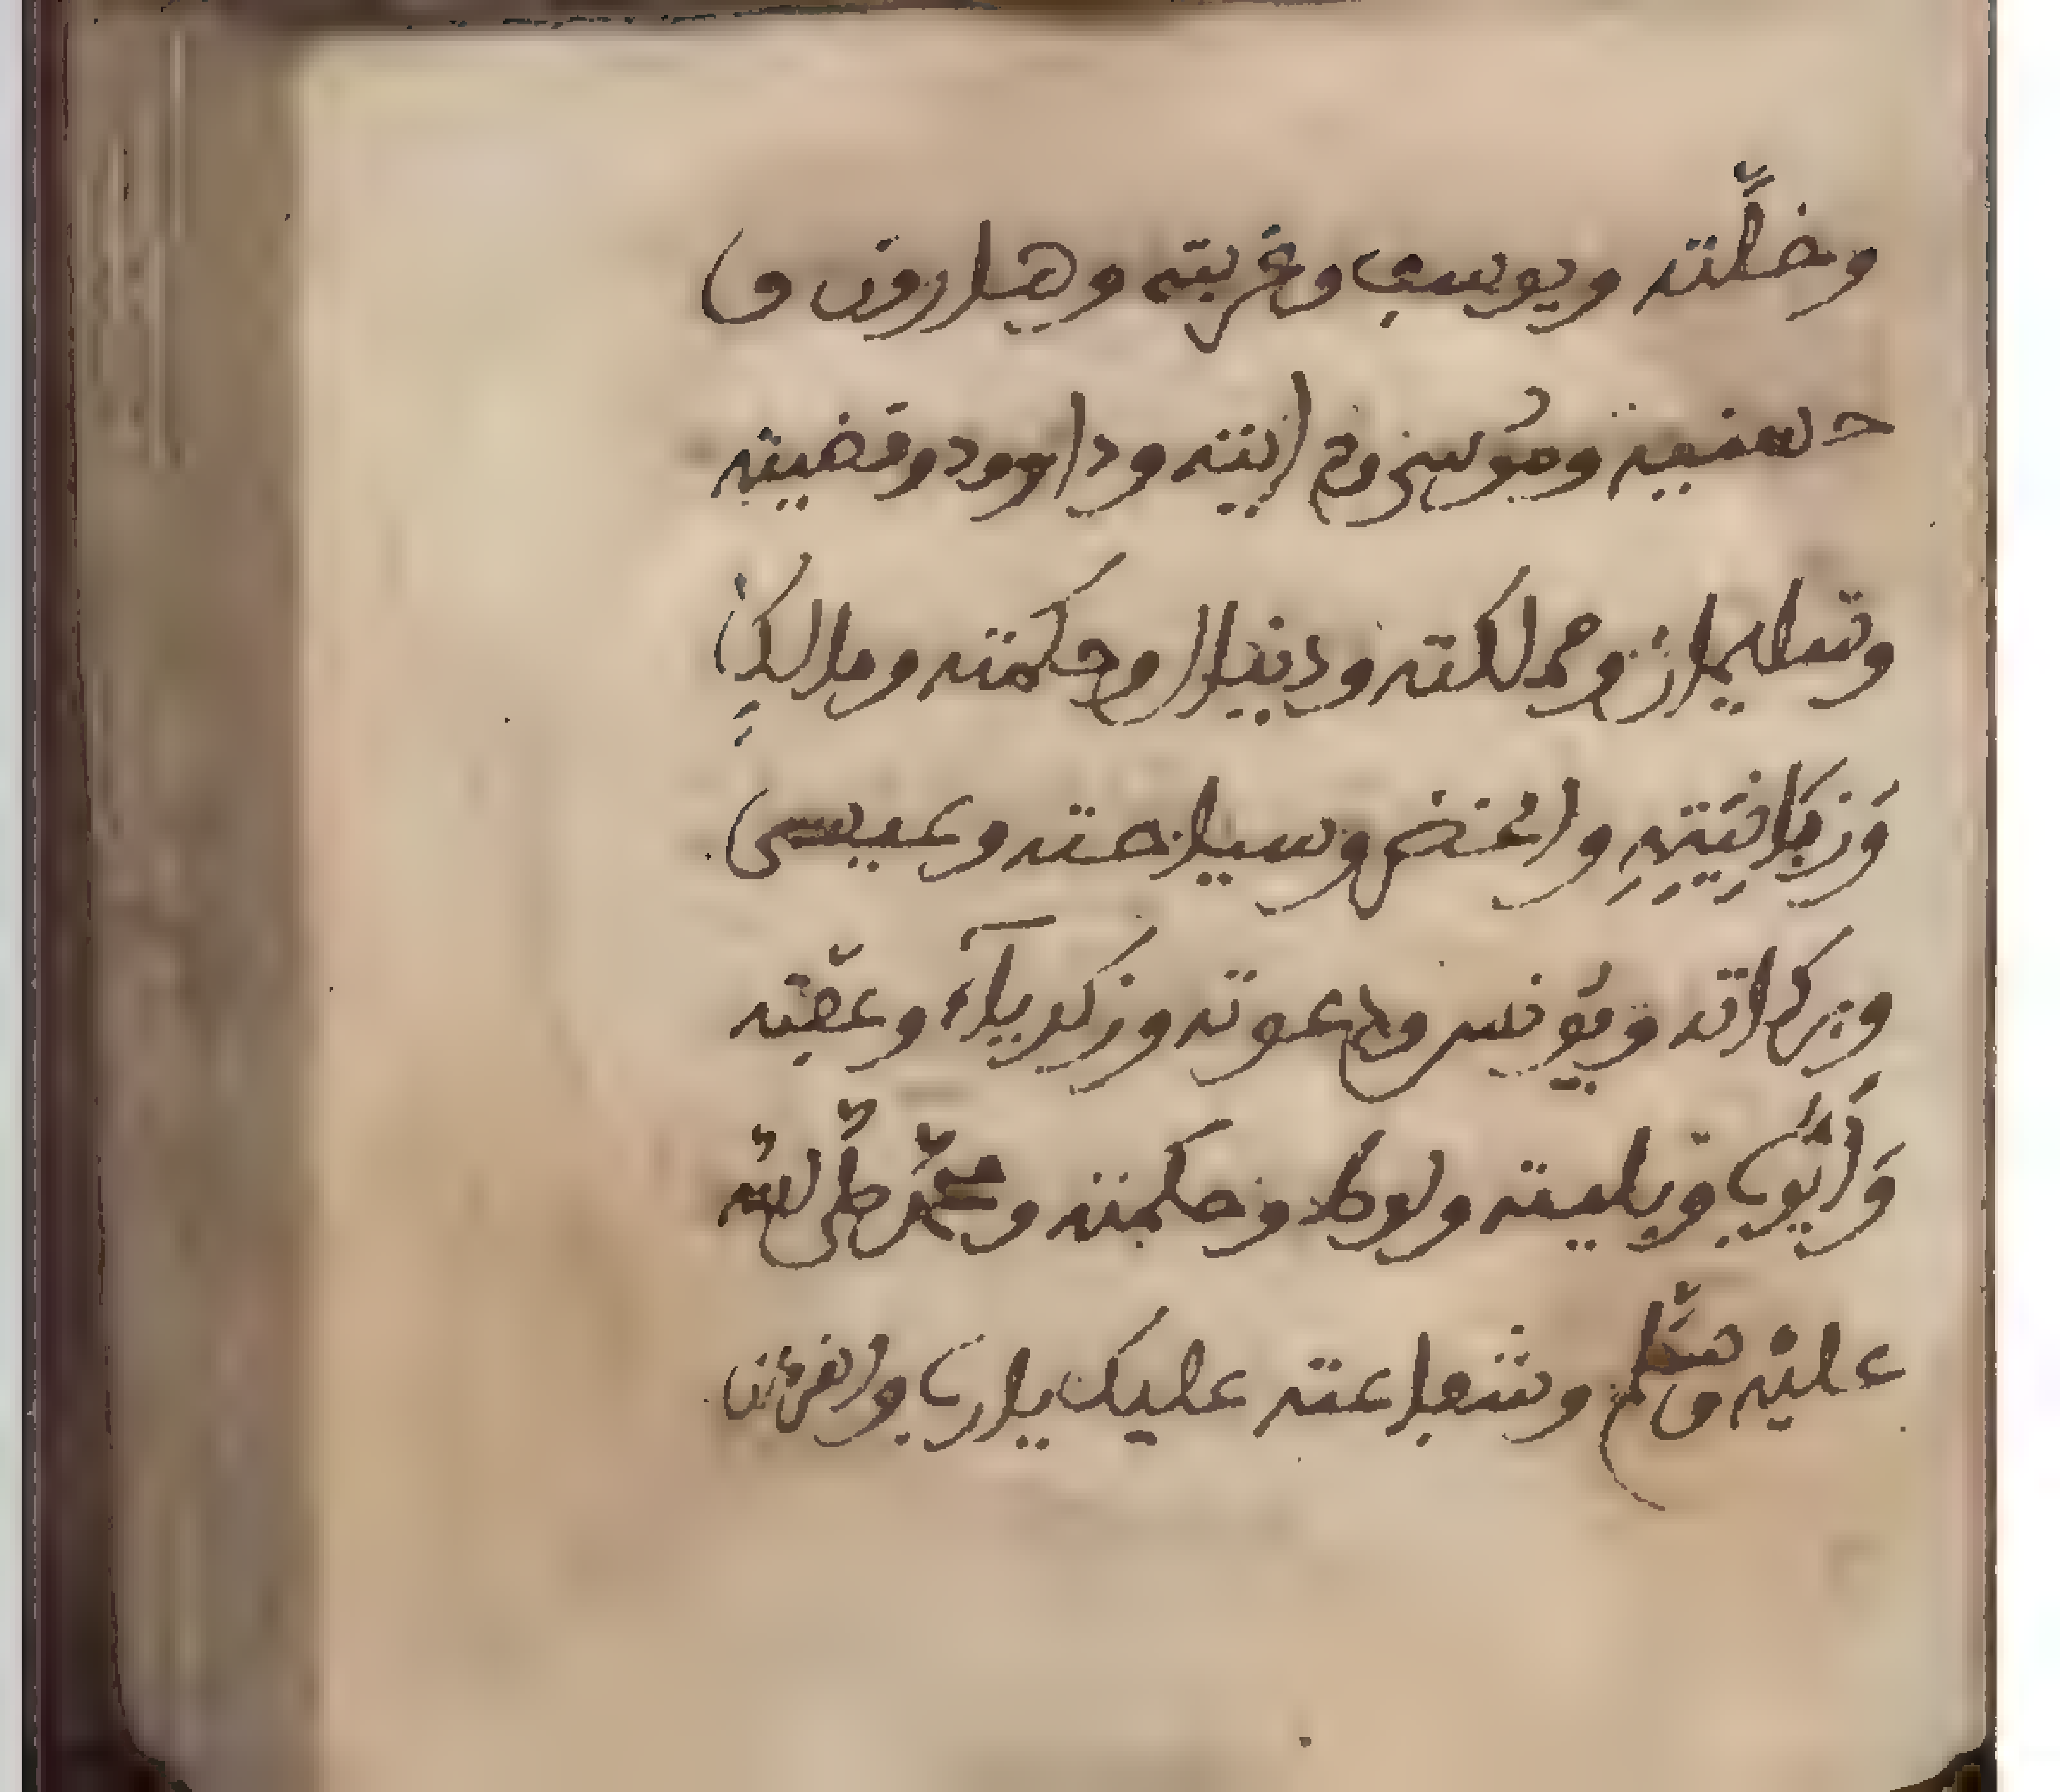 وخلّته ويوسف وغربته وهارون و
حسنيته وموسى وم ايته وداوود وقضيته
وسليمان ومملكته ودنيال وحكمته ومالكٍ
وَزبَانِيَتِهِ والخضر وسياحته وعيسى
وبركاته ويُونس ودعوته وزكرياء وعفّته
وَأَيُّوب وبليته ولوط وحكمته ومحمّد صلّى الله
عليه وسلّم وشفاعته عليك يارب والقرءان